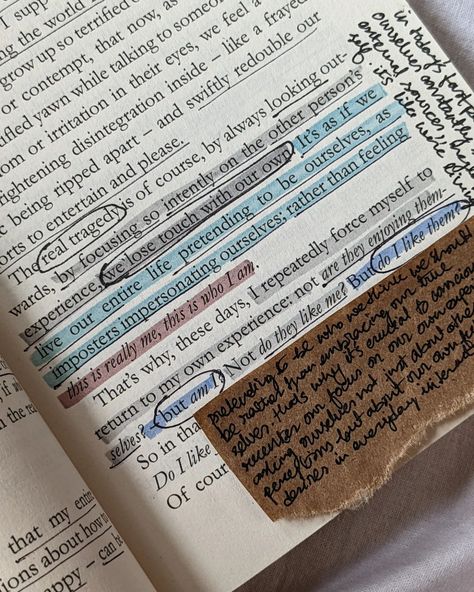 I supp
ing the world
grow up so terrified
or contempt, that now, as
ified yawn while talking to someon
om or irritation in their eyes, we feel a
ghtening disintegration inside – like a frayed
being ripped apart – and swiftly redouble our
orts to entertain and please.
The real tragedy is of course, by always looking out-
wards, by focusing so intently on the other person's
experience, we lose touch with our own. It's as if we
live our entire life pretending to be ourselves, as
imposters impersonating ourselves; rather than feeling
this is really me, this is who I am.
That's why, these days, I repeatedly force myself to
return to my own experience: not are they enjoying them-
selves? – but am I? Not do they like me? But do I like them?
So in tha
Do I like
Of cour
that my entire
ions about how
appy – can be
ourselves
external sources,
self. it's like we're
pretending to be who we think we should
be rather than embracing our true
selves. that's why it's crucial to
recenter our focus on our own
asking ourselves not just about
perceptions but about our own
desires in everyday